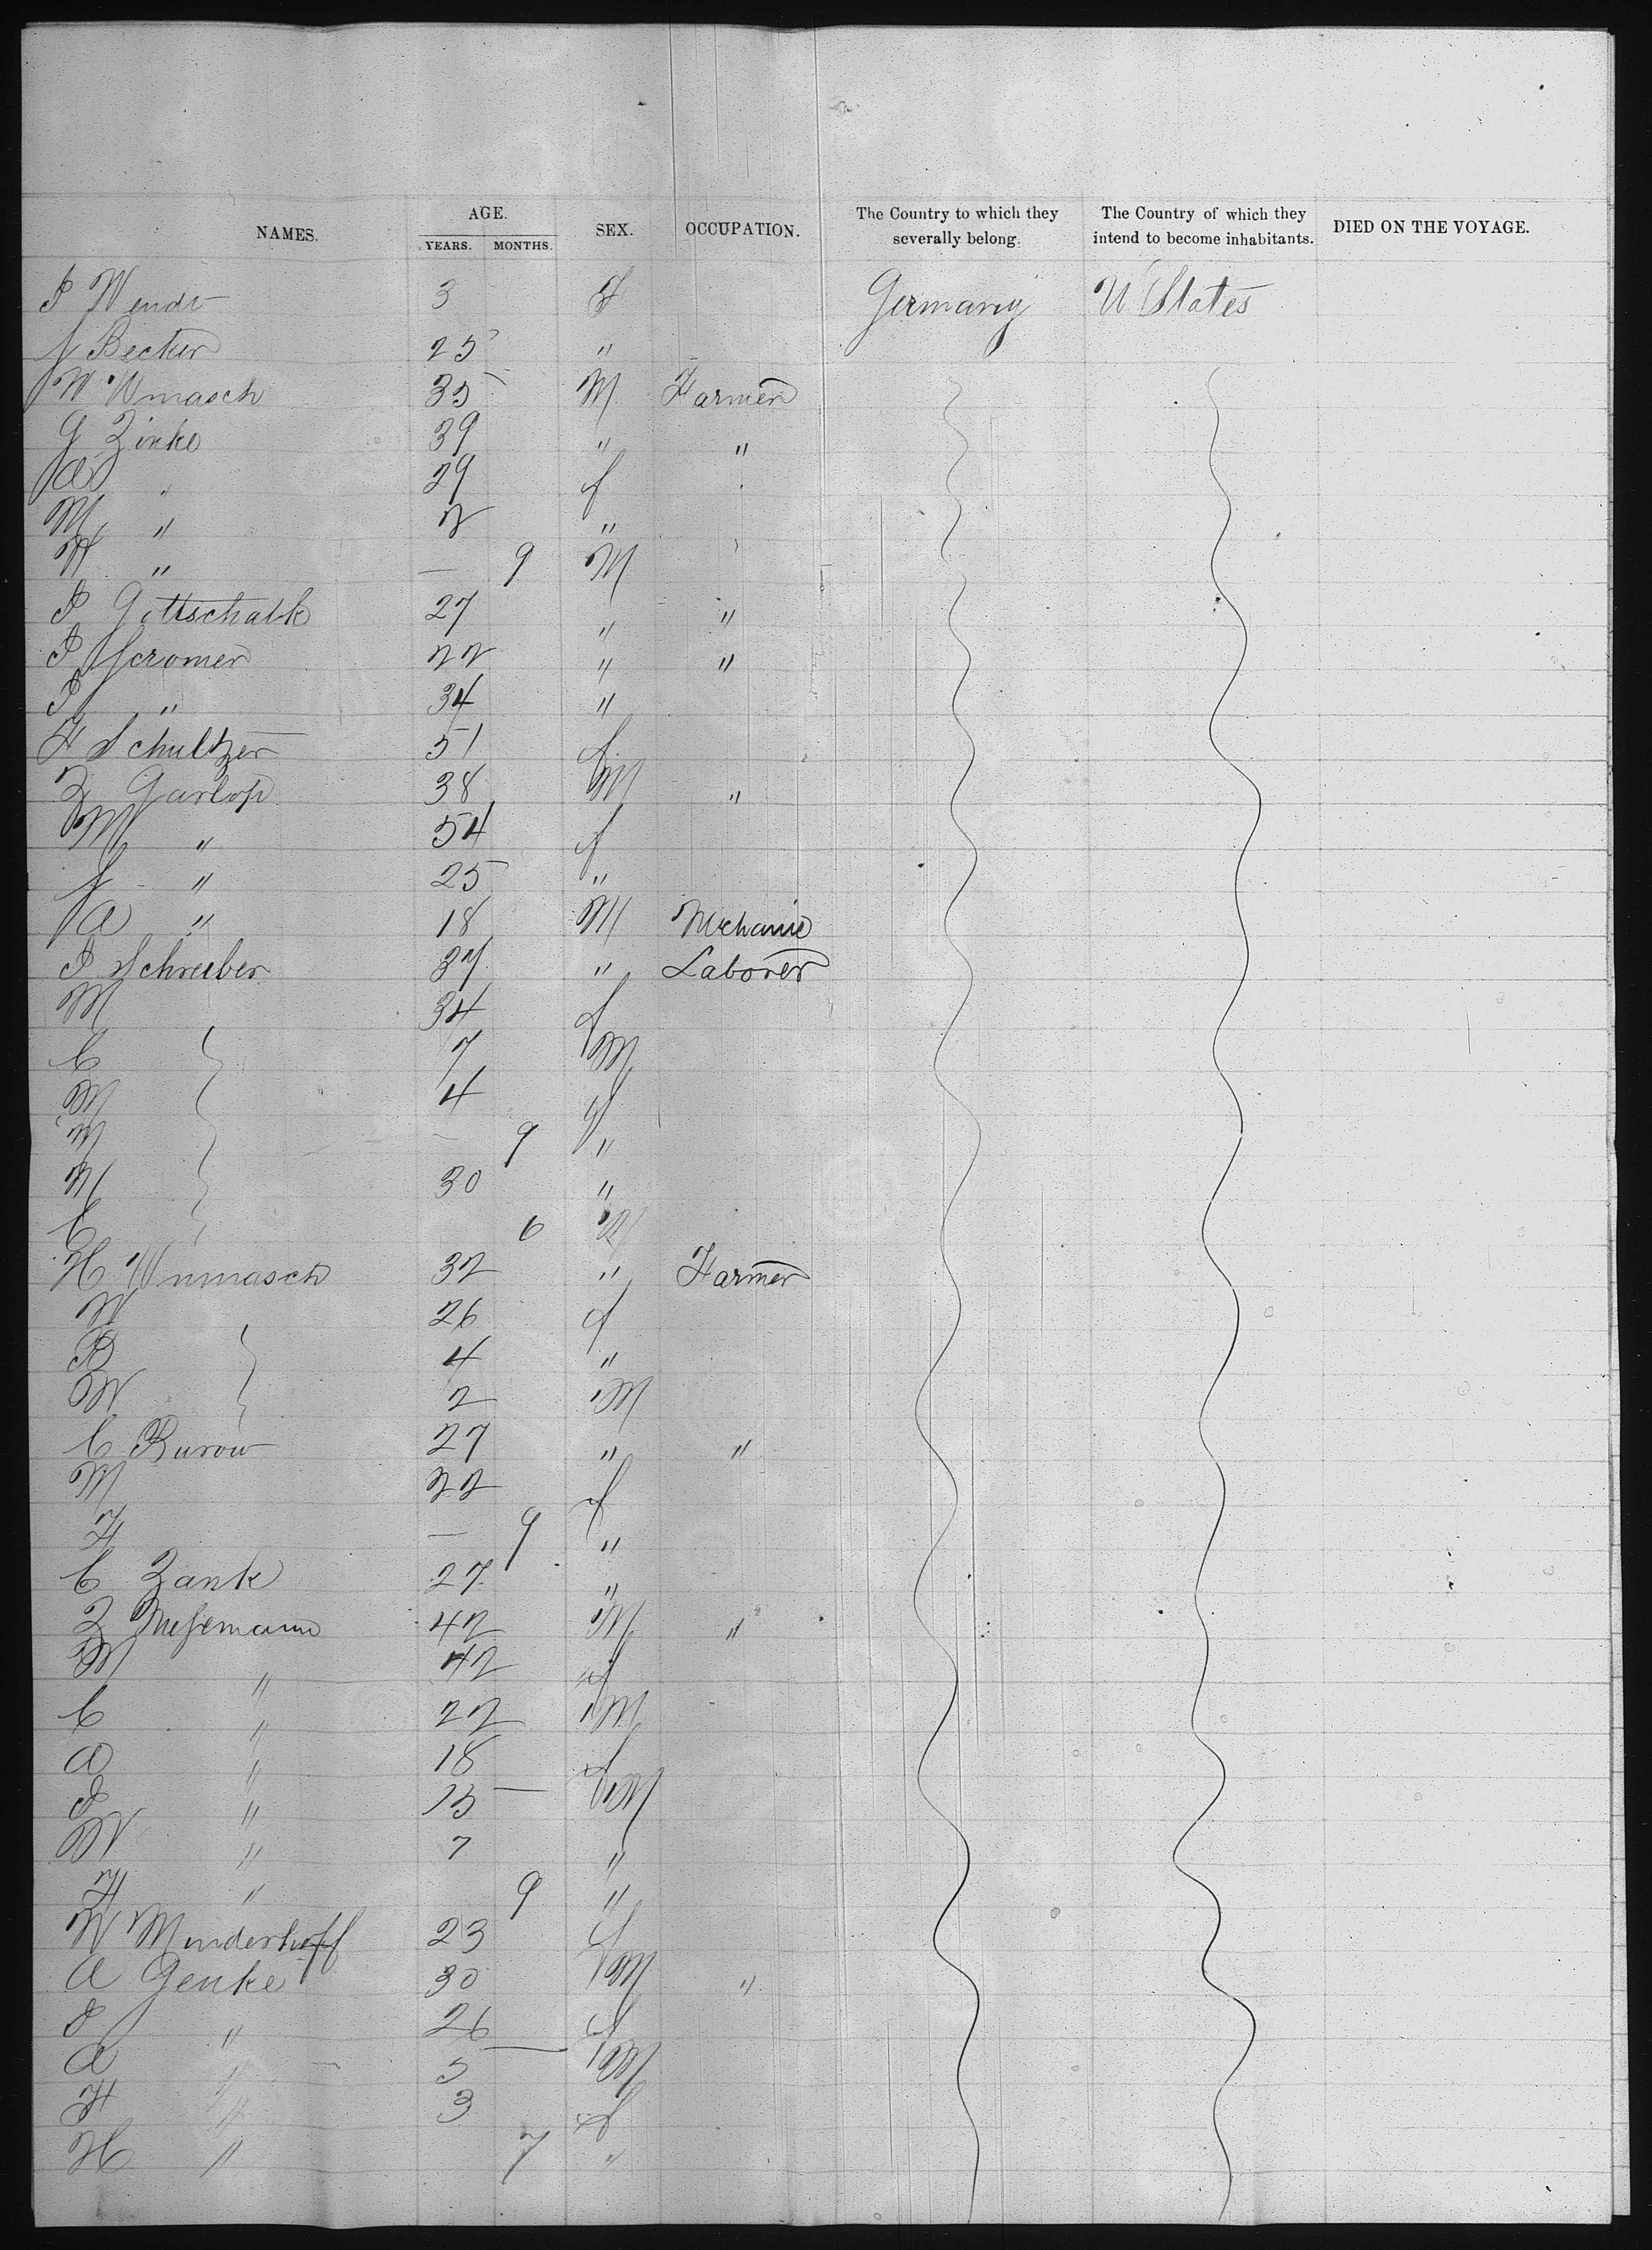 NAMES. AGE. YEARS. MONTHS. SEX. OCCUPATION. The Country to which they severally belong. The Country of which they intend to become inhabitants. DIED ON THE VOYAGE.
P Wendt 3 F Germany U States
J Becker 25 "
W Wmasch 35 M Farmer
G Zinke 39 " "
A " 29 f
M " 2 "
H " — 9 M
P Gottschalk 27 " "
P Scromer 22 " "
P " 34 "
F Schultzer 51 f
Z Garlop 38 M "
M " 54 f
J " 25 "
A " 18 M Mchanic
P Schreiber 37 " Laborer
M 34 f
C 7 M
M 4 f
M — 9 "
M 30 "
C 6 M
H Wnmasch 32 " Farmer
W 26 f
B 4 "
W 2 M
C Burow 27 " "
M 22 f
F — 9 "
C Zank 27 "
Z 42 M "
M " 42 f
C " 22 M
A " 18 f
P " 15 M
W " 7 "
F " 9 "
W Minderhoff 23 f
A Genke 30 M "
P " 26 f
A " 5 M
F " 3 f
H " 7 "